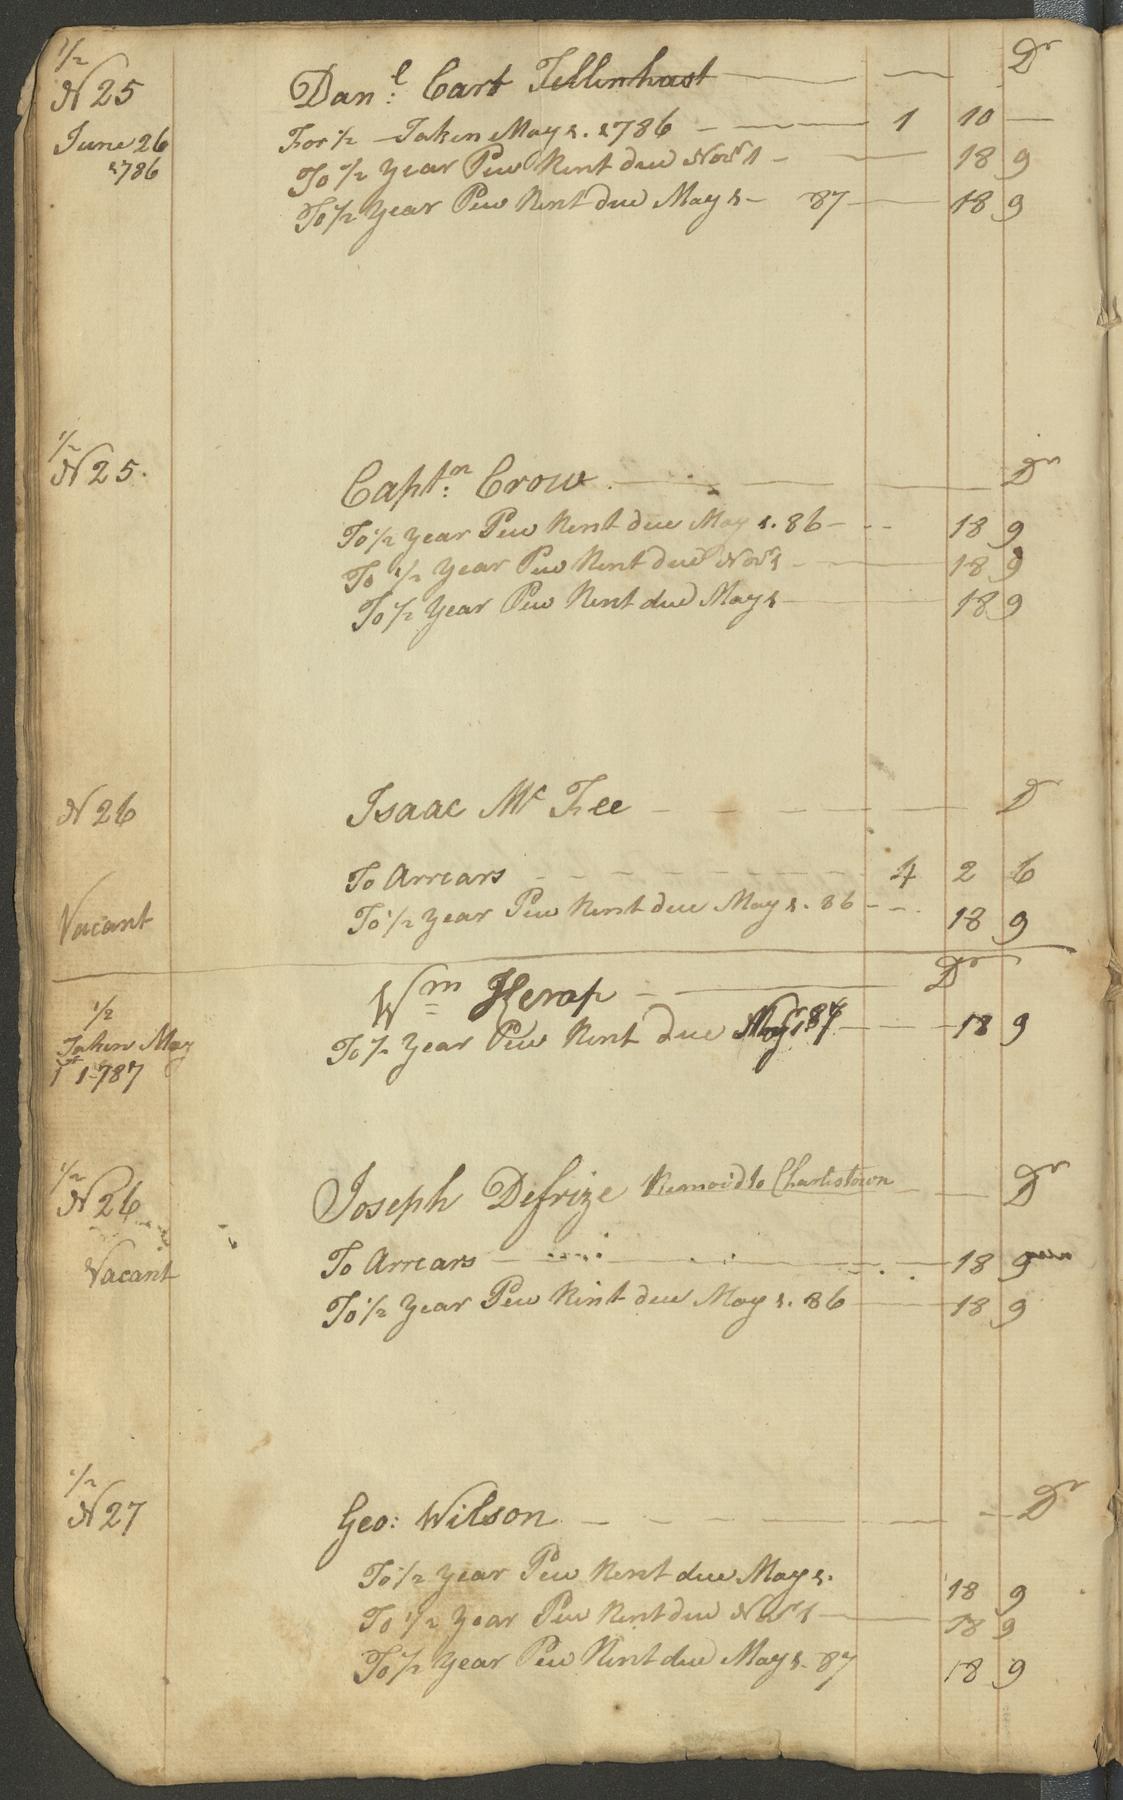 1/2
N 25 Dan:l Cart Tillinhast Dr
June 26 For 1/2 - Taken May 1. 1786 - 1 10 -
1786 To 1/2 Year Pew Rent due Novr 1 - 18 9
To 1/2 Year Pew Rent due May 1 - 87 - 18 9
1/2
N 25. Capt:n Crow Dr
To 1/2 Year Pew Rent due May 1. 86 - 18 9
To 1/2 Year Pew Rent due Novr 1 - 18 9
To 1/2 Year Pew Rent due May 1 - 18 9
N 26 Isaac Mc Fee - Dr
To Arrears 4 2 6
Vacant To 1/2 Year Pew Rent due May 1. 86 - 18 9
Wm Herap - Dr
1/2 To 1/2 Year Pew Rent due May 1 87 - 18 9
Taken May
1st 1787
1/2
N 26 Joseph Defrize Remov'd to Charlestown Dr
To Arrears - 18 9
Vacant To 1/2 Year Pew Rent due May 1. 86 - 18 9
1/2
N 27 Geo: Wilson - Dr
To 1/2 Year Pew Rent due May 1. 18 9
To 1/2 Year Pew Rent due Novr 1 - 18 9
To 1/2 Year Pew Rent due May 1. 87 18 9